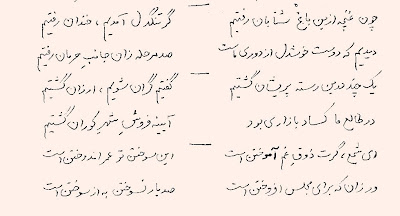 چون غنچه ازین باغ شتابان رفتیم گر تنگدل آمدیم ، خندان رفتیم
دیدیم که دوست خوشدل از دوری ماست صد مرحله زان جانبِ حرمان رفتیم
یک چند درین رسته پریشان گشتیم گفتیم گران شویم ، ارزان گشتیم
در طالع ما کساد بازاری بود آیینه فروشِ شهرِ کوران گشتیم
ای شمع ، گرت ذوقِ غم آموختن است این سوختن تو عمر اندوختن است
ور زان که برای مجلس افروختن است صد بار نسوختن به از سوختن است